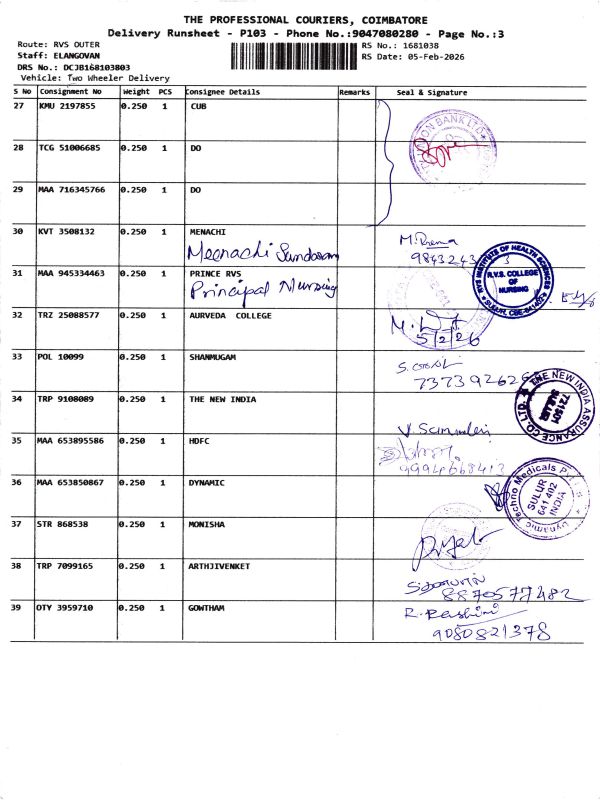 THE PROFESSIONAL COURIERS, COIMBATORE
Delivery Runsheet - P103 - Phone No.:9047080280 - Page No.:3
Route: RVS OUTER
RS No.: 1681038
Staff: ELANGOVAN
RS Date: 05-Feb-2026
DRS No.: DCJB168103803
Vehicle: Two Wheeler Delivery
S No Consignment No Weight PCS Consignee Details Remarks Seal & Signature
27 KMU 2197855 0.250 1 CUB
28 TCG 51006685 0.250 1 DO
BANK LTD
29 MAA 716345766 0.250 1 DO
30 KVT 3508132 0.250 1 MENACHI
Meenachi Sundaram
M. Prema
9843243
RVS INSTITUTE OF HEALTH SCIENCES
R.V.S. COLLEGE
OF
NURSING
SULUR, CBE-641402
31 MAA 945334463 0.250 1 PRINCE RVS
Principal Nursing
32 TRZ 25088577 0.250 1 AURVEDA COLLEGE
5/2/26
33 POL 10099 0.250 1 SHANMUGAM
737392626
34 TRP 9108089 0.250 1 THE NEW INDIA
THE NEW INDIA ASSURANCE CO. LTD.
721501
SULUR
35 MAA 653895586 0.250 1 HDFC
9994668412
36 MAA 653850867 0.250 1 DYNAMIC
Dynamic Techno Medicals
SULUR
641 402
INDIA
37 STR 868538 0.250 1 MONISHA
38 TRP 7099165 0.250 1 ARTHJIVENKET
8870577482
39 OTY 3959710 0.250 1 GOWTHAM
R. Rashini
9080821378